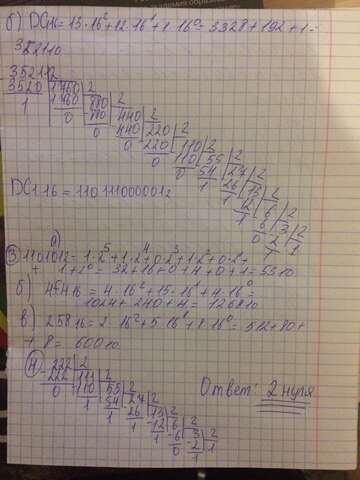 б) DC1₁₆ = 13·16² + 12·16¹ + 1·16⁰ = 3328 + 192 + 1 =
3521₁₀
3521 2
3520 1760 2
1 1760 880 2
0 880 440 2
0 440 220 2
0 220 110 2
0 110 55 2
0 54 27 2
1 26 13 2
1 12 6 2
1 6 3 2
0 2 1
1
DC1₁₆ = 110111000001₂
③ а) 110101₂ = 1·2⁵ + 1·2⁴ + 0·2³ + 1·2² + 0·2¹ +
+ 1·2⁰ = 32 + 16 + 0 + 4 + 0 + 1 = 53₁₀
б) 4F4₁₆ = 4·16² + 15·16¹ + 4·16⁰ =
1024 + 240 + 4 = 1268₁₀
в) 258₁₆ = 2·16² + 5·16¹ + 8·16⁰ = 512 + 80 +
+ 8 = 600₁₀
④ 222 2
222 111 2
0 110 55 2
1 54 27 2
1 26 13 2
1 12 6 2
1 6 3 2
0 2 1
1
Ответ: 2 нуля